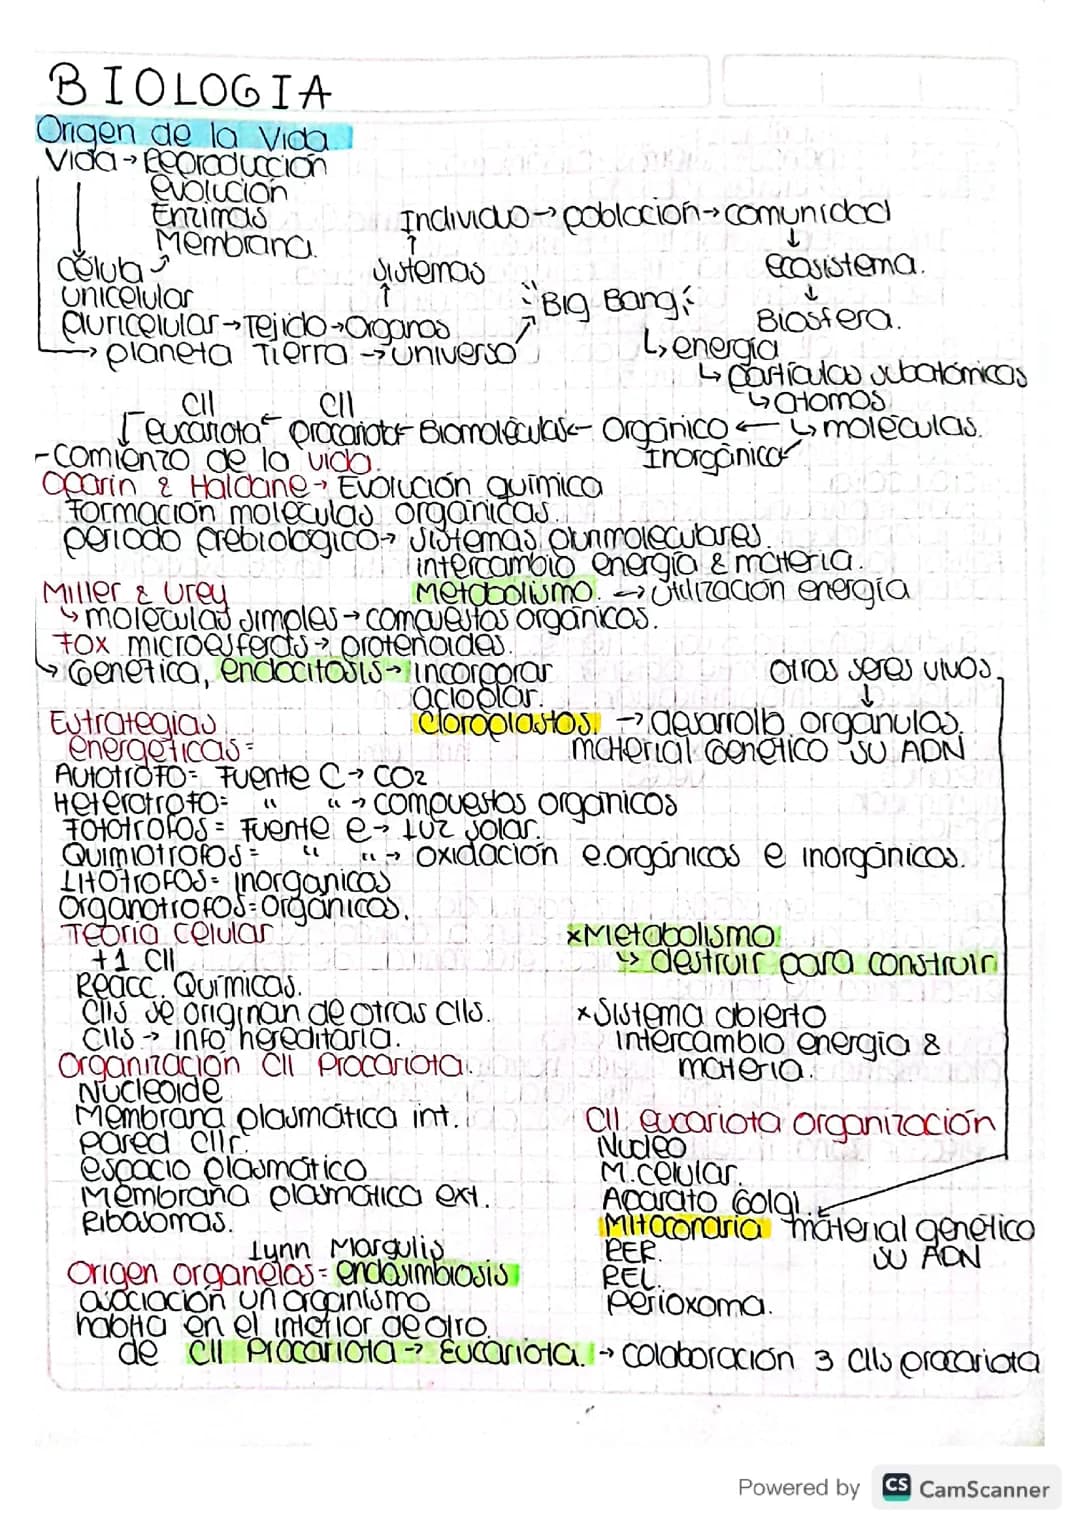 BIOLOGIA
Origen de la Vida
Vida → Reproducción
evolución
Enzimas
Membrana.
célula
unicelular
pluricelular → Tejido → Organos
sistemas
Individuo → población → comunidad
ecosistema.
Biosfera.
planeta Tierra → universo
Big Bang
↳ energía
↳ partículas subatómicas
↳ atomos
↳ moléculas.
Cll Cll
eucariota ← procariota ← Biomoléculas ← Orgánico ←
Inorgánico
- comienzo de la vida.
Oparin & Haldane → Evolución química
Formación moléculas orgánicas.
periodo prebiologico → sistemas plurimoleculares.
intercambio energía & materia.
Miller & Urey
Metabolismo. → utilización energía
↳ moléculas simples → compuestos orgánicos.
Fox microesferas → protenoides.
↳ Genética, endocitosis → incorporar
acloplar.
otros seres vivos
Cloroplastos. → desarrollo organulos.
material genético su ADN
Estrategias
energéticas =
Autotrofo = Fuente C → CO2
Heterotrofo = " " → compuestos organicos
Fototrofos = Fuente e → Luz solar.
Quimiotrofos = " " → oxidación e.orgánicos e inorgánicos.
Litotrofos = inorganicos
Organotrofos = Orgánicos.
Teoria celular
+1 Cll
Reacc. Químicas.
Clls se originan de otras clls.
Clls → info hereditaria.
×Metabolismo
↳ destruir para construir
×Sistema abierto
intercambio energia &
materia.
Organización Cll Procariota.
Nucleoide
Membrana plasmática int.
pared cllr.
espacio plasmático
Membrana plasmática ext.
Ribosomas.
Cll eucariota organización
Nucleo
M.celular.
Aparato Golgi.
Mitocondria material genético
su ADN
RER.
REL.
perioxoma.
Lynn Margulis
Origen organelos = endosimbiosis
asociación un organismo
habita en el interior de otro.
de Cll Procariota → Eucariota. → colaboración 3 clls procariota
Powered by CS CamScanner